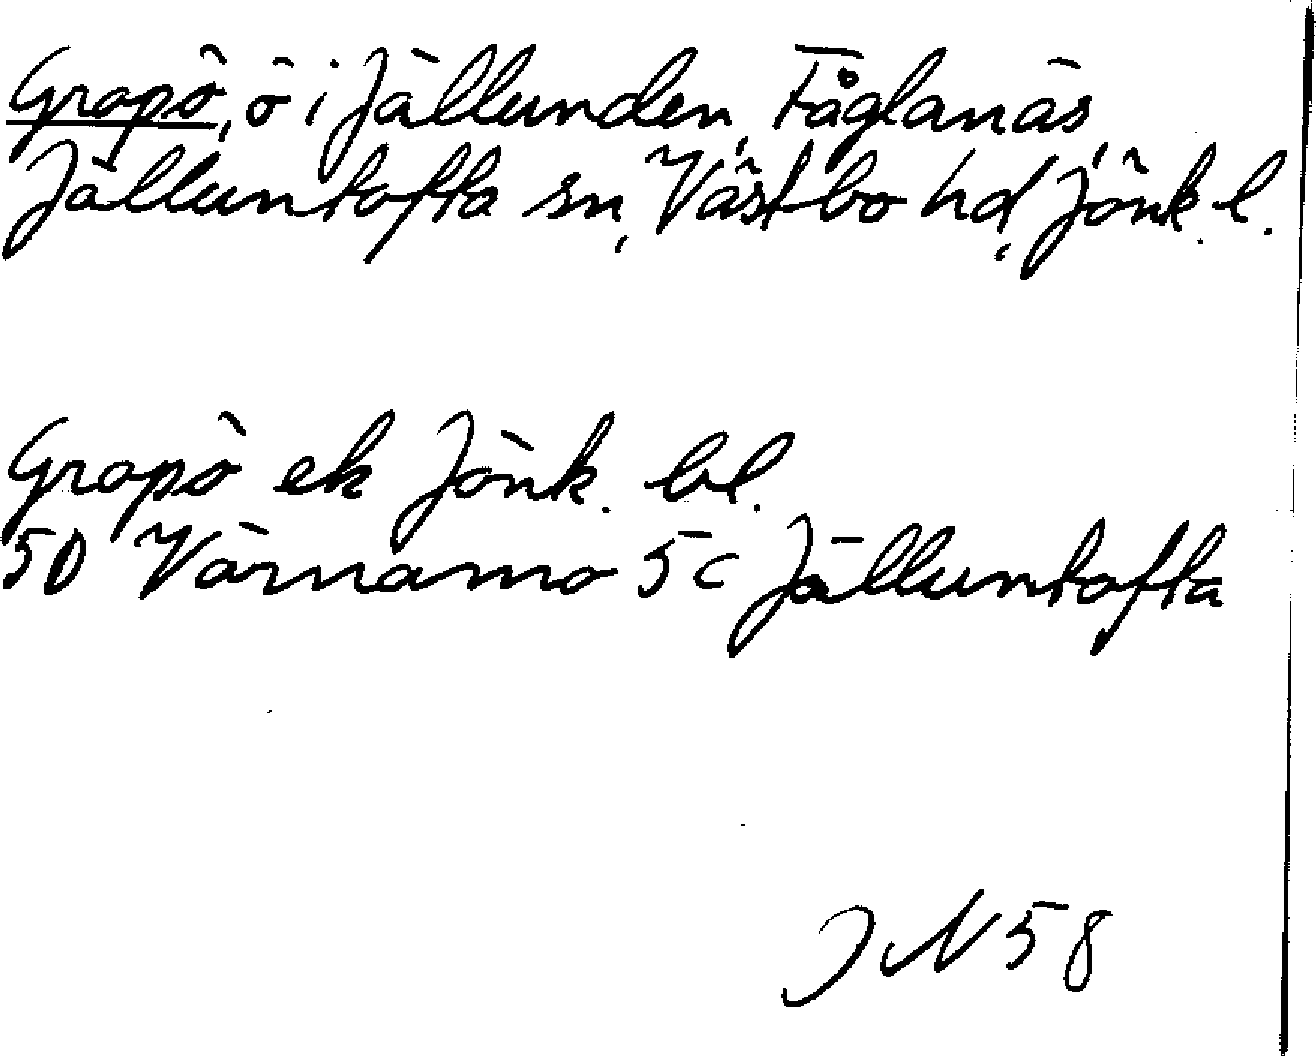 Gropö, ö i Jällunden, Fåglanäs,
Jälluntofta sn, Västbo hd, Jönk. l.
Gropö ek Jönk. bl.
5D Värnamo 5c Jälluntofta
JN 58